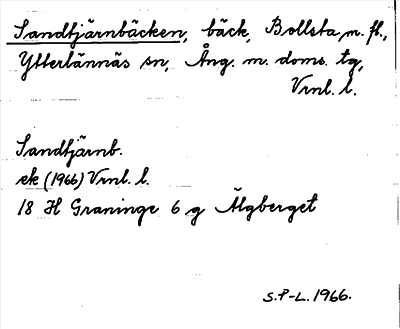 Sandtjärnbäcken, bäck, Bollsta, n. fb.,
Ytterlännäs sn, Ång. m. doms. tg,
Vrnl. l.
Sandtjärnb.
ek (1966) Vrnl. l.
18 H Graninge 6 g Älgberget
S.P-L. 1966.